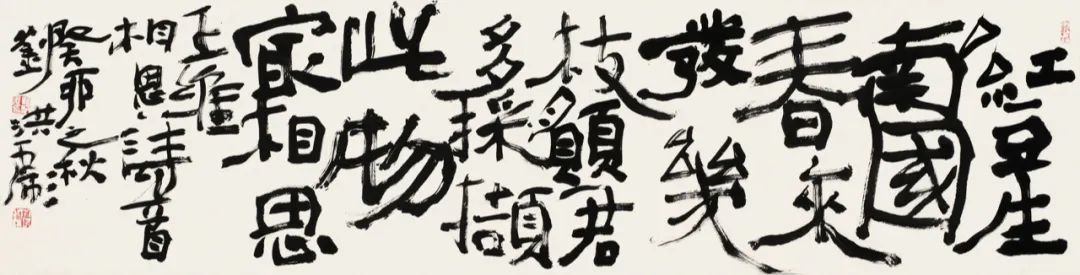 紅豆生
南國
春來
發幾
枝願君
多採擷
此物
冣相思
王維
相思詩一首
癸卯之秋
劉洪彪